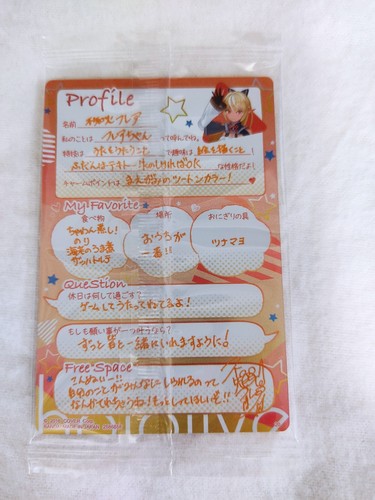 Profile
名前 不知火フレア
私のことは フレアちゃん って呼んでね。
特技は うたをうたうこと で趣味は 絵を描くこと!
ふだんはテキトー 生のしりればOK な性格だよ!
チャームポイントは 金と赤の ツートンカラー!
My Favorite
食べ物
ちゃわん蒸し!
のり
場所
おうちが
一番!!
おにぎりの具
ツナマヨ
QueStion
休日は何して過ごす?
ゲームしてうたってねてるよ!
もしも願い事が一つ叶うなら?
ずっと皆と一緒にいれますように!
Free Space
こんぬい〜!!
自分のことがみんなに しられるのって
なんかてれちゃうね! もっとしてほしいぞ!!
hololive